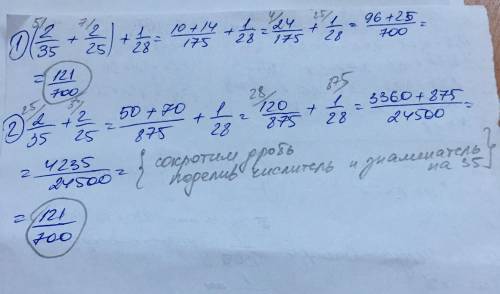 5/ 7/ 4/ 25/
1) (2/35 + 2/25) + 1/28 = (10+14)/175 + 1/28 = 24/175 + 1/28 = (96+25)/700 =
= 121/700
25/ 35/ 28/ 875/
2) 2/35 + 2/25 = (50+70)/875 + 1/28 = 120/875 + 1/28 = (3360+875)/24500 =
= 4235/24500 = { сократим дробь
поделив числитель и знаменатель
на 35 }
= 121/700